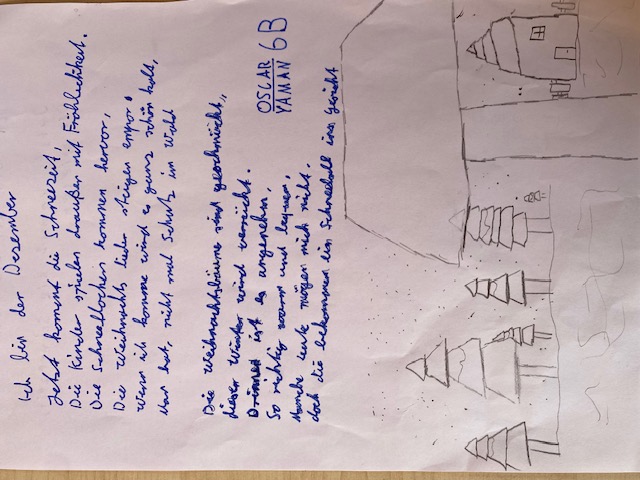 Ich bin der Dezember
Jetzt kommt die Schneezeit,
Die Kinder spielen draußen mit Fröhlichkeit.
Die Schneeflocken kommen hervor,
Die Weihnachts lieder steigen empor,
wenn ich komme wird es ganz schön kalt,
Man hat, nicht mal Schutz im Wald
Die Weihnachtsbäume sind geschmückt,
dieser Winter wird verrückt.
Drinnen ist es angenehm,
So richtig warm und bequem,
Manche Leute mögen mich nicht.
doch die bekommen ein Schneeball ins gesicht
OSCAR
YAMAN 6B